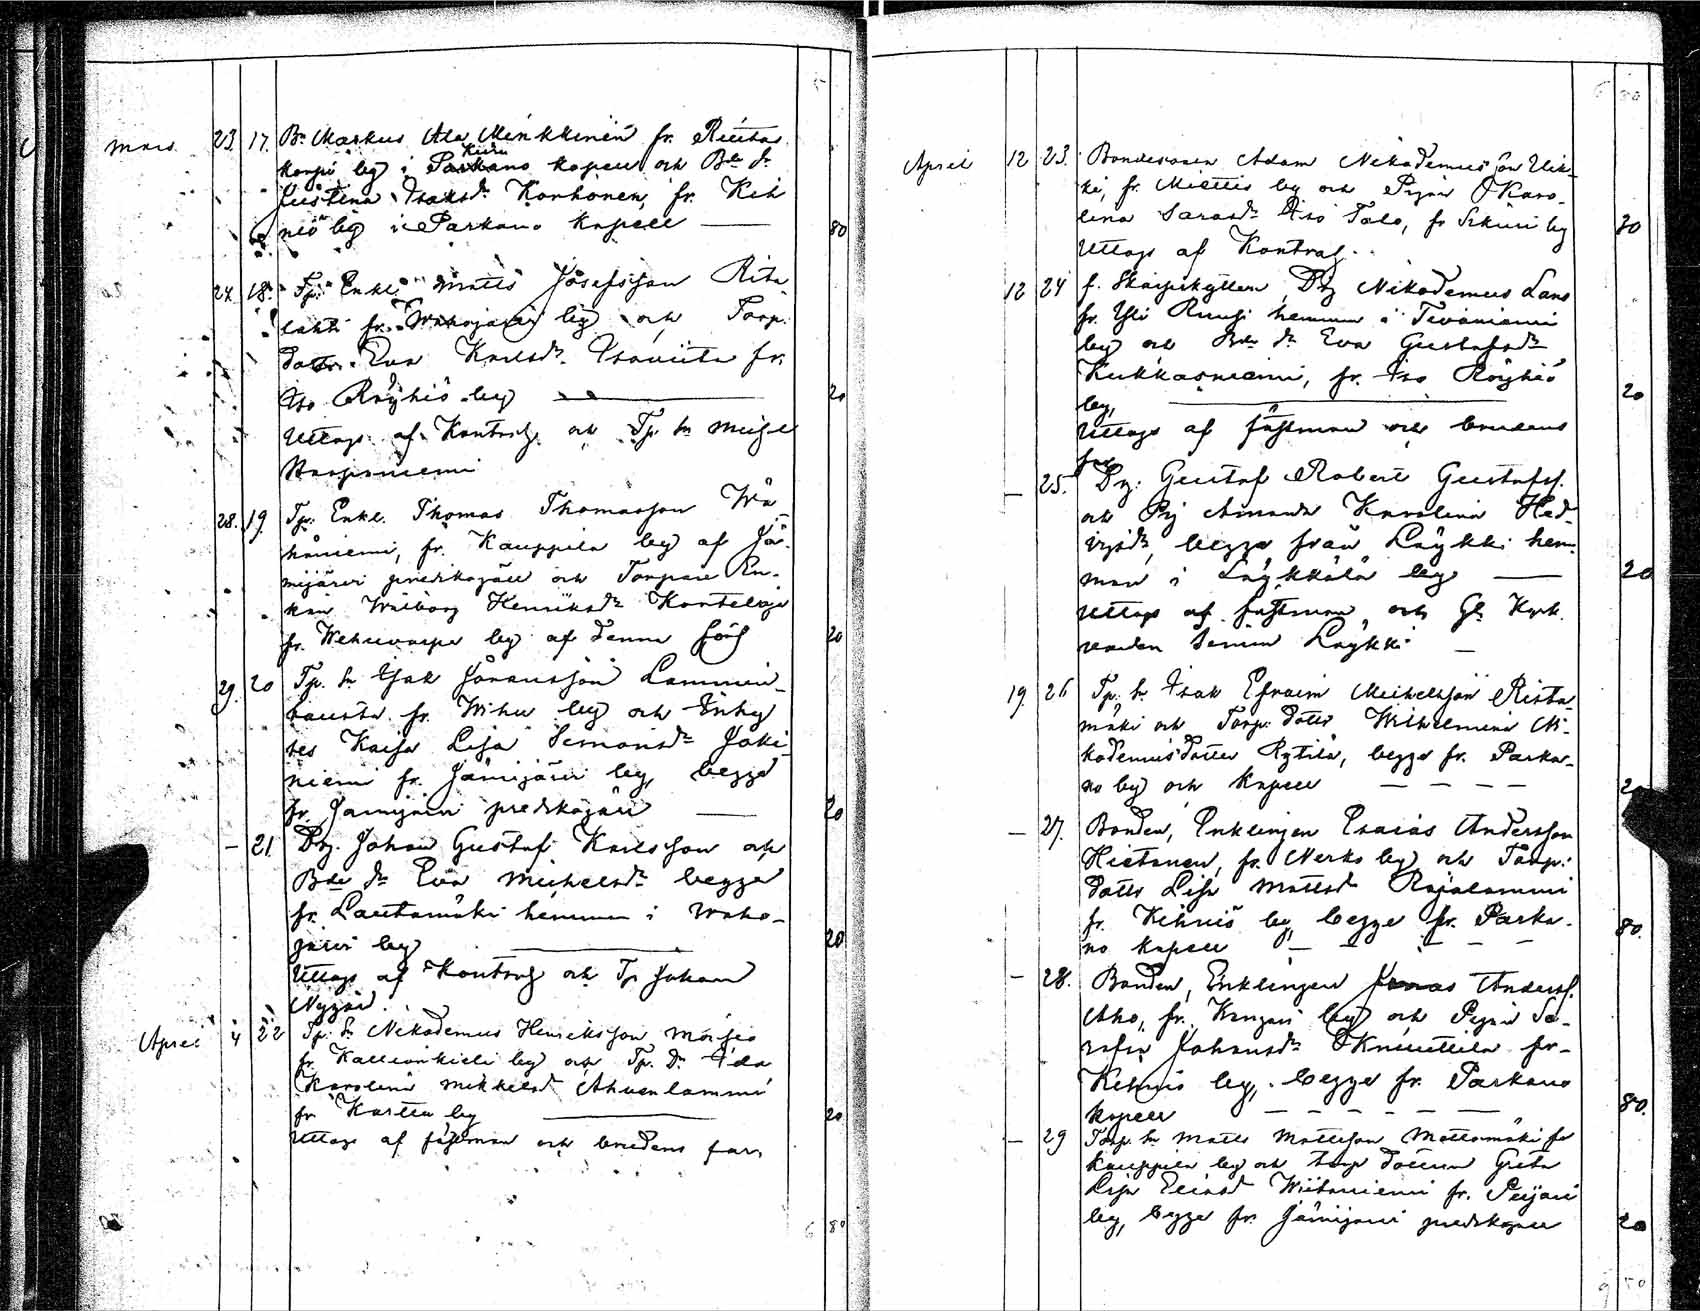 Mars 23. 17. Bn Markus Ala Minkkinen fr. Riitas
konpi by i Parkano Kuru kapell och Bde dr
Justina Isaksdr Korhonen, fr. Kih
niö by i Parkano kapell — 80
24. 18. Tp. Enkl. Matts Josefsson Rita
lahti fr. Wahojärvi by och Torp.
dottr. Eva Karlsdr Isoviita fr.
Iso Röyhiö by — 20
Uttogs af Kontrah. och Tp. sn
Haapaniemi
28. 19. Tp. Enkl. Thomas Thomasson Wä
häniemi, fr. Kauppila by af Jä-
mijärvi predikogäll och Torpare En-
kan Walborg Henriksdr
fr. Wehuvarpe by af denna förs 20
29. 20 Tp. sn Isak Johansson Lammin-
rausta fr. Wihu by och Inhy
ses Kaisa Lisa Simonsdr Joki
niemi fr. Jämijärvi by, begge
fr. Jämijärvi predikogäll — 20
— 21. Drg. Johan Gustaf Karlsson och
Bde dr Eva Michelsdr begge
fr. Lautamäki hemman i Waho-
järvi by — 20.
Uttogs af Kontrah och Tp Johan
Nygård.
April 4 22 Tp. sn Nikodemus Henriksson
fr. Kallionkieli by och Tp. Dr. Ida
Karolina Mikkelsd Ahvenlammi
fr Karttu by — 20
Uttogs af fästman och brudens far,
6 80
6 80
April 12 23. Bondesonen Adam Nikodemusson Uik-
ki, fr. Miettis by och Pigan Karo-
lina Sarasdr Iso Talo, fr Sikuri by 20
Uttogs af Kontrah.
12 24 f. Skarpskytten, Drg Nikodemus Lans
fr. Yli Ruusi hemman i Tevaniemi
by och Bde dr Eva Gustafsdr
Kukkasniemi, fr. Iso Röyhiö 20
by, —
Uttogs af fästman och brudens
far
— 25. Drg. Gustaf Robert Gustafss.
och Pig Amanda Karolina Hed-
vigsdr, begge från Läykki hem-
man i Läykkälä by — 20
Uttogs af fästman och Gl. Kyrk.
värden Läykki —
19. 26 Tp. sn Isak Efraim Michelsson Rista
mäki och Torp. dottr Wilhelmina Ni-
kodemusdotter Rytilä, begge fr. Parka-
no by och kapell — — — — 20
— 27. Bonden, Enklingen Esaias Andersson
Hietanen, fr. Nerko by och Torp:
dottr Lisa Mattsd Rajalammi
fr. Kihniö by, begge fr. Parka-
no kapell — — — — — 80.
— 28. Bonden, Enklingen Jonas Anderss.
Aho, fr. Kangari by och Pigan Se-
rafia Johansdr Knuuttila fr-
Kihniö by, begge fr. Parkano
kapell — — — — — — 80.
— 29 Torp. sn Matts Mattsson Mattomäki fr
Kauppila by och torp dottern Greta
Lisa Eliasd Wiitaniemi fr. Peijari
by, begge fr. Jämijärvi predikogäll 20
9 50